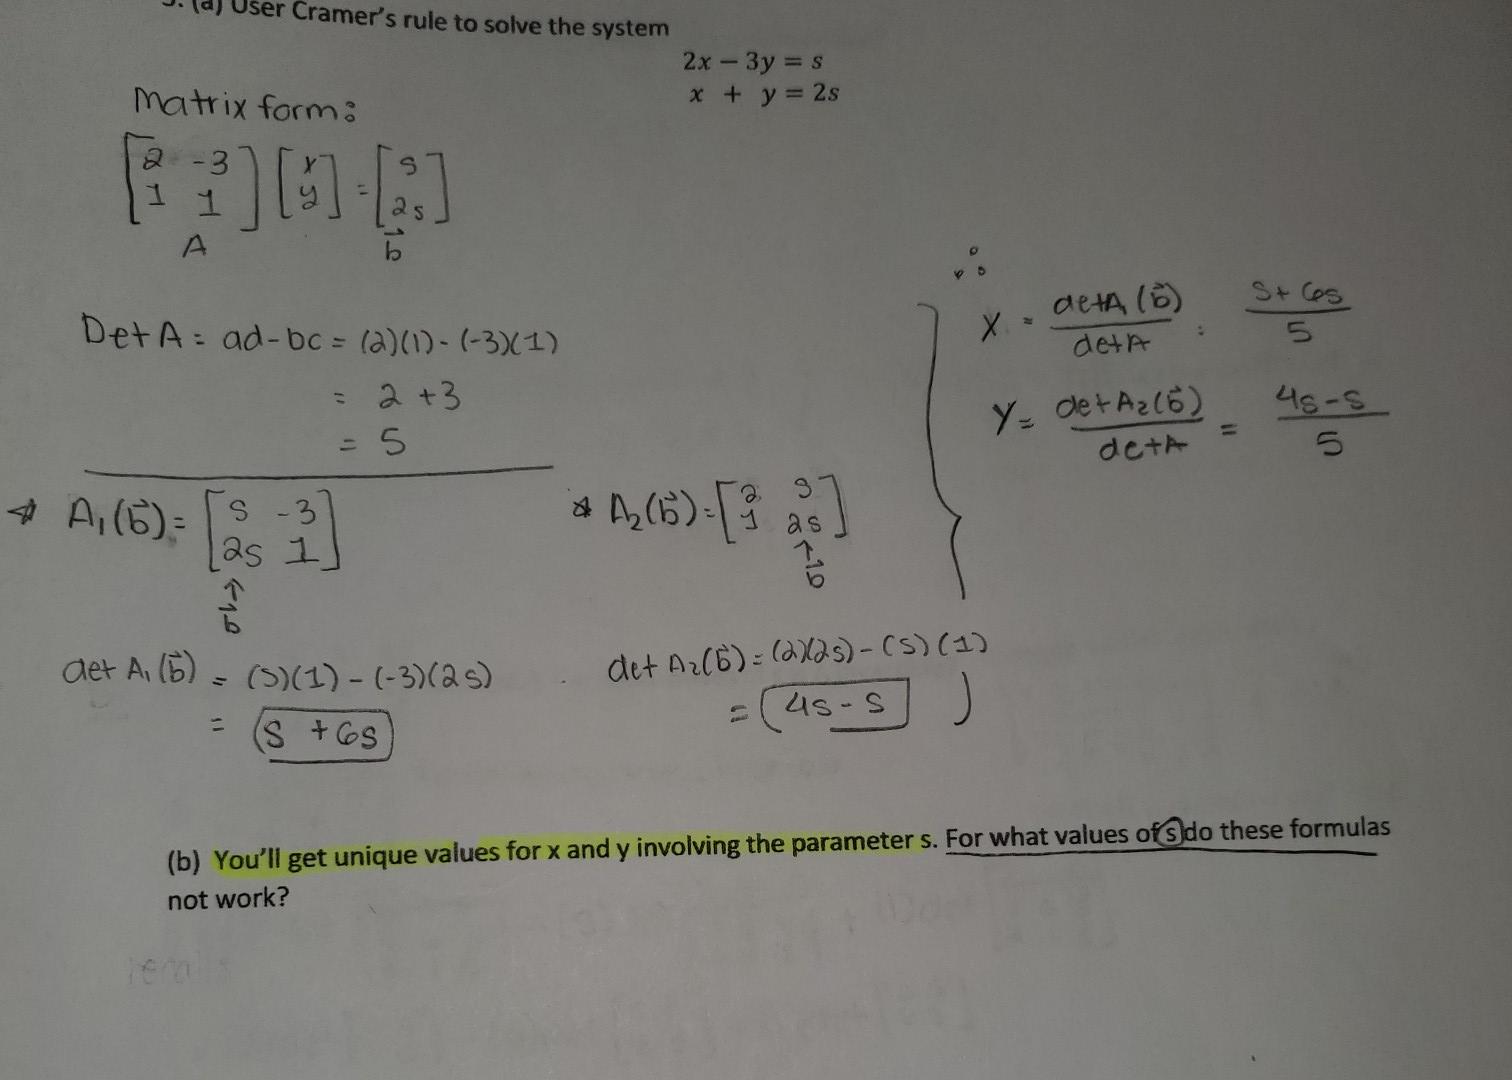 (a) User Cramer's rule to solve the system
2x – 3y = s
x + y = 2s
Matrix form:
[2 -3
1 1] [x
y] = [s
2s]
A
b⃗
Det A = ad-bc = (2)(1) - (-3)(1)
= 2 +3
= 5
A₁(b⃗) = [s -3
2s 1]
↑
b⃗
det A₁(b⃗) = (s)(1) - (-3)(2s)
= s + 6s
A₂(b⃗) = [2 s
1 2s]
↑
b⃗
det A₂(b⃗) = (2)(2s) - (s)(1)
= 4s - s
∴
x = detA₁(b⃗)/detA = s+6s/5
Y = detA₂(b⃗)/detA = 4s-s/5
(b) You'll get unique values for x and y involving the parameter s. For what values of s do these formulas
not work?